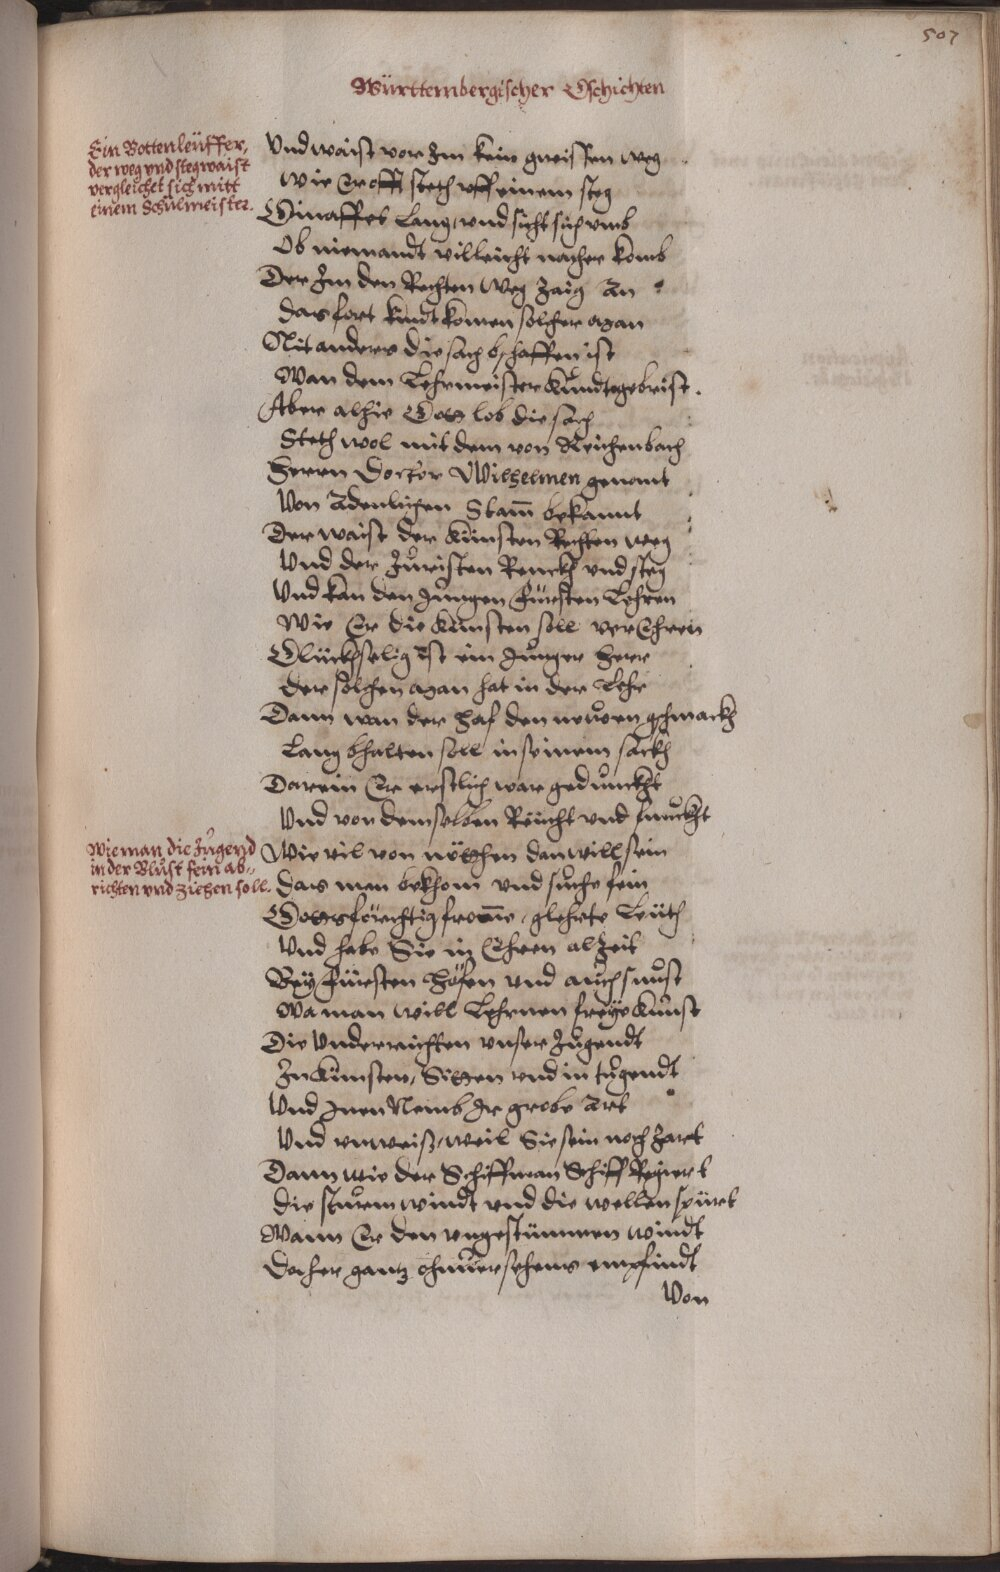 507
Württembergischer Gschichten
Ein Bottenleüffer,
der weg vnd steg waist
vergleichet sich mitt
einem Schůlmeister.
Vnd waist vor Im kein gweissen weg
Wie Er offt steth vff einem steg
Ginaffet lang, vnd sicht sich vmb
Ob niemandt villeicht nacher komb
Der Im den Rechten weg zaig an
das fort kindt komen solcher man
Nit anders die sach bschaffen ist
Wan dem Lehrmeister kůndt gebrist.
Aber alhie Gott lob die sach
Steth wol mit dem von Reichenbach
Herrn Doctor Wilhelmen genant
Von Adenlichen Stam̄ bekannt
Der waist der künsten Rechten weg
Vnd der Jůristen Renckh vnd steg
Vnd kan den Jůngen Fürsten Lehren
Wie Er die künsten soll ver Ehren
Glückhselig ist ein Jůnger Herr
der solchen man hat in der Lehr
Dann wan der Haf den newen gschmackh
Lang bhalten soll in seinem sackh
Darein Er erstlich war gedůnckht
Vnd von demselben Reücht vnd
Wie man die Jůgend
in der Blůst fein ab-
richten vnd ziehen soll.
Wie vil von nöthen dan will sein
das man bekhom vnd sůche fein
Gottsförchtig from̄e, glehrte Leüth
Vnd habe Sie in Ehren alzeit
Bey Fürsten Höfen vnd aůch sůnst
Wa man will Lehrnen freye kůnst
Die Vnderrichten vnser Jůgendt
In künsten, Sitten vnd in tůgendt
Vnd Inen Nemb Ir grobe art
Vnd vnweiß, weil Sie sein noch zart
Dann wie der Schiffman Schiff Regiert
die stůrmwindt vnd die wellen spürt
Wann Er den vngestümmen windt
daher gantz ohnversehens empfindt
Von